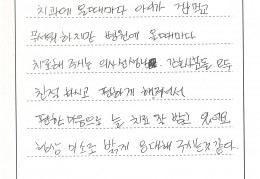 치과에 올때마다 아이가 겁먹고
무서워 하지만 병원에 올때마다
치료해 주시는 의사선생님, 간호사분들 모두
친절 하시고 편하게 해주셔서
편한 마음으로 늘 치료 잘 받고 있어요
항상 미소로 밝게 응대해 주시는것 같다.